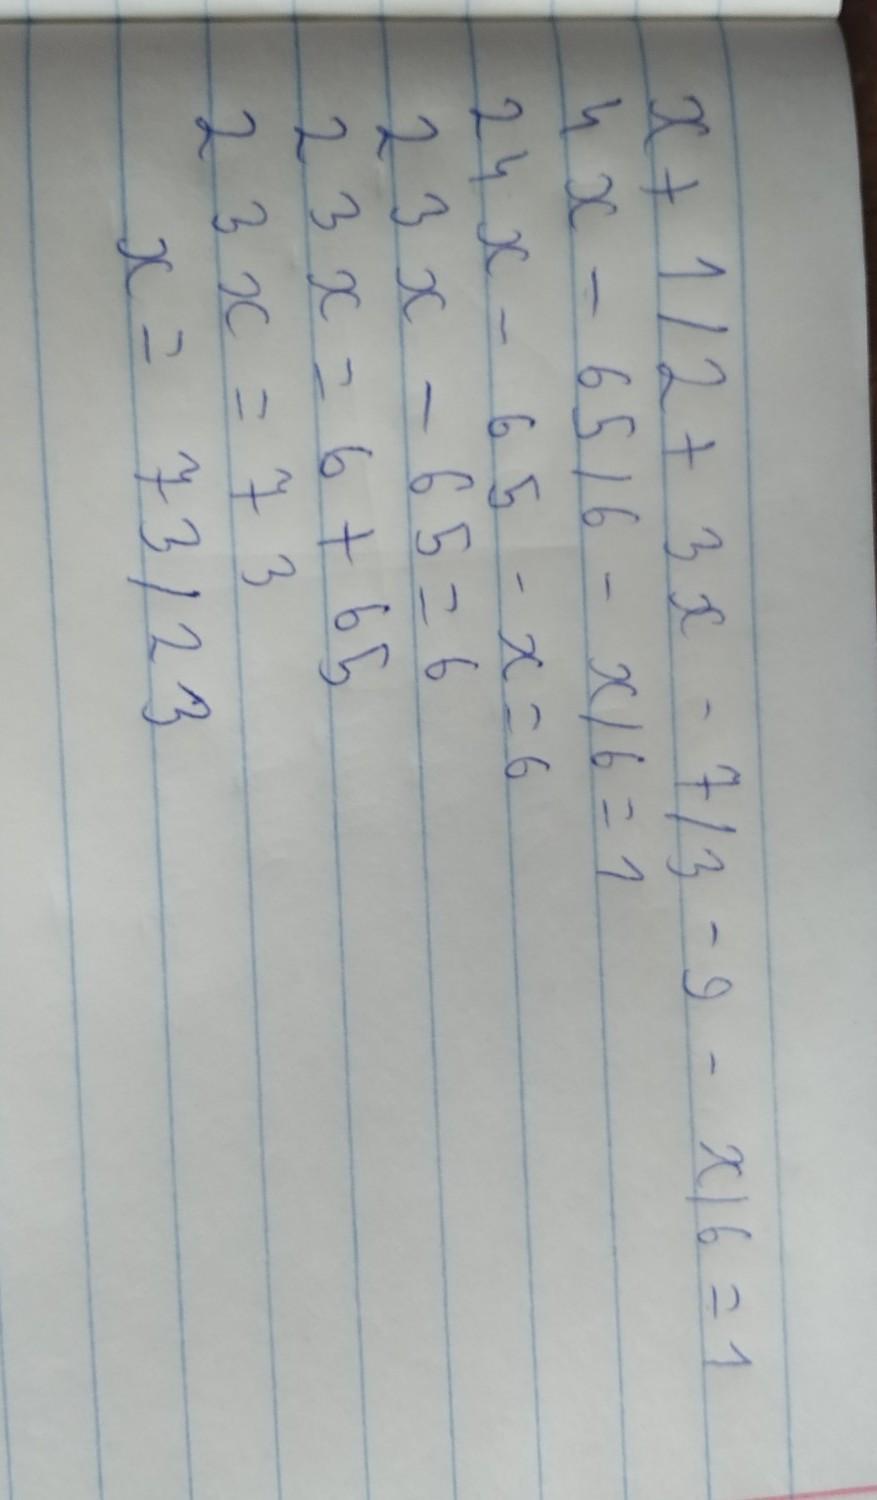 x + 1/2 + 3x - 7/3 - 9 - x/6 = 1
4x - 65/6 - x/6 = 1
24x - 65 - x = 6
23x - 65 = 6
23x = 6 + 65
23x = 73
x = 73/23